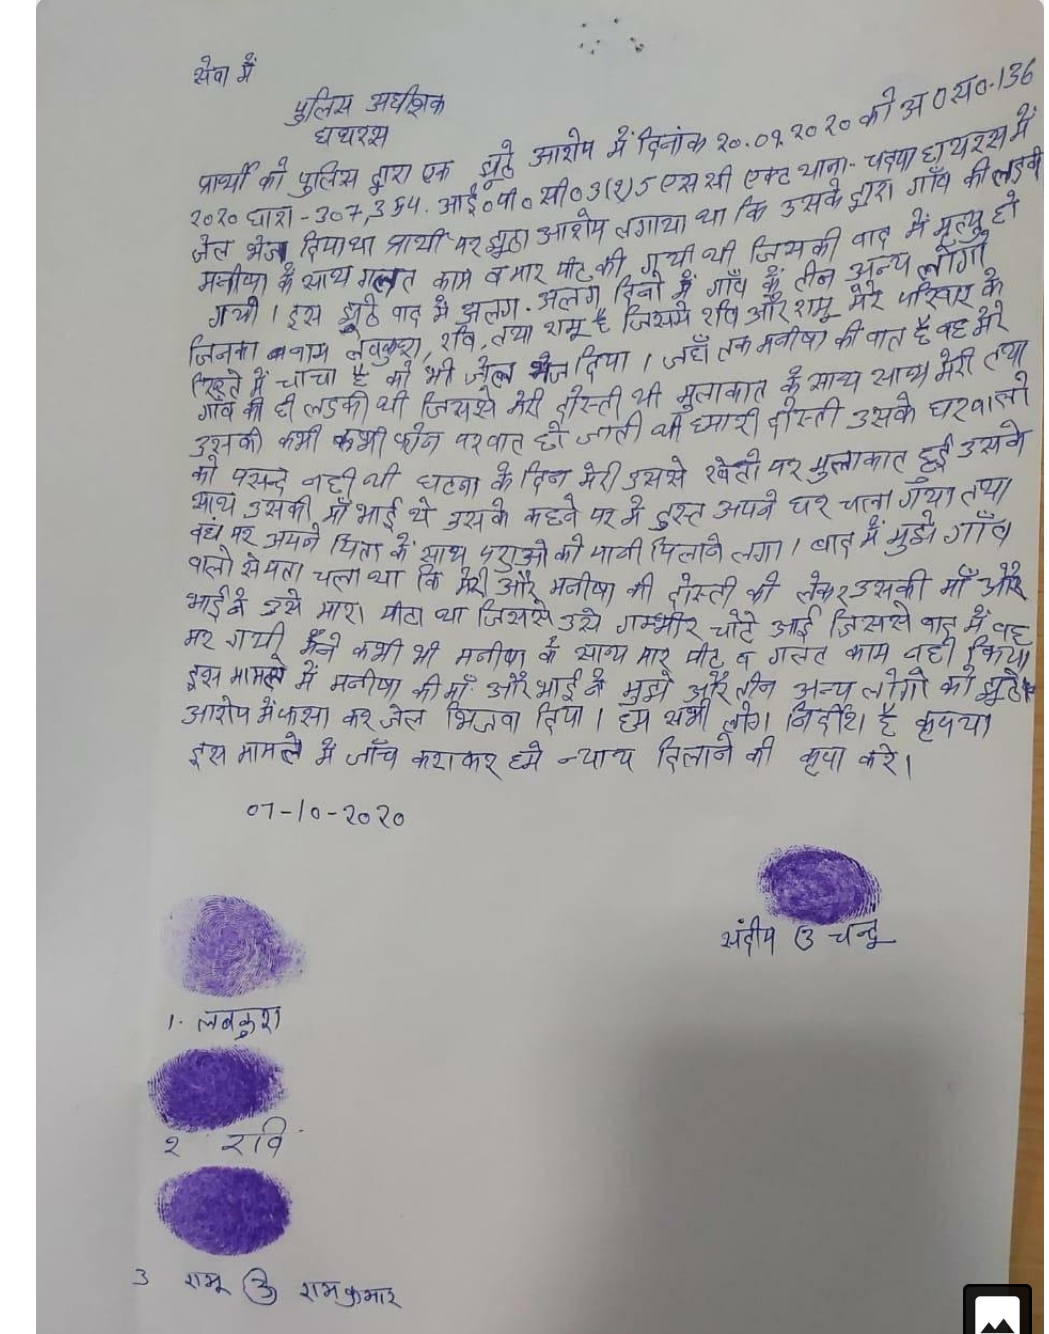 सेवा में
पुलिस अधीक्षक
हाथरस
प्रार्थी को पुलिस द्वारा एक झूठे आरोप में दिनांक २०.०९.२०२० को अ०सं०-136
२०२० धारा - 307, 354. आई०पी०सी० 3(२)5 एससी एक्ट थाना- चन्दपा हाथरस में
जेल भेज दिया था प्रार्थी पर झूठा आरोप लगाया था कि उसके द्वारा गाँव की लडकी
मनीषा के साथ गलत काम व मार पीट की गयी थी जिसकी बाद में मृत्यू हो
गयी । इस झूठे वाद में अलग-अलग दिनों में गाँव के तीन अन्य लोगों
जिनका नाम लवकुश, रवि, तथा रामू है जिसमें रवि और रामू मेरे परिवार के
रिश्ते में चाचा है को भी जेल भेज दिया । जहाँ तक मनीषा की बात है वह मेरे
गाँव की ही लडकी थी जिससे मेरी दोस्ती थी मुलाकात के साथ साथ मेरी तथा
उसकी कभी कभी फोन पर बात हो जाती थी हमारी दोस्ती उसके घरवालो
को पसन्द नही थी घटना के दिन मेरी उससे खेतो पर मुलाकात हुई उसके
साथ उसकी माँ भाई थे उसके कहने पर मै तुरन्त अपने घर चला गया तथा
वहां पर अपने पिता के साथ पशुओ को पानी पिलाने लगा । बाद में मुझे गाँव
वालो से पता चला था कि मेरी और मनीषा की दोस्ती को लेकर उसकी माँ और
भाई ने उसे मारा पीटा था जिससे उसे गम्भीर चोटे आई जिससे बाद में वह
मर गयी मैंने कभी भी मनीषा के साथ मार पीट व गलत काम नही किया
इस मामले में मनीषा की माँ और भाई ने मुझे और तीन अन्य लोगो को झूठे
आरोप में फसा कर जेल भिजवा दिया । हम सभी लोग निर्दोश है कृपया
इस मामले में जाँच कराकर हमे न्याय दिलाने की कृपा करे ।
07-10-२०२०
संदीप उ चन्दू
1. लवकुश
२ रवि
3 रामू उ रामकुमार